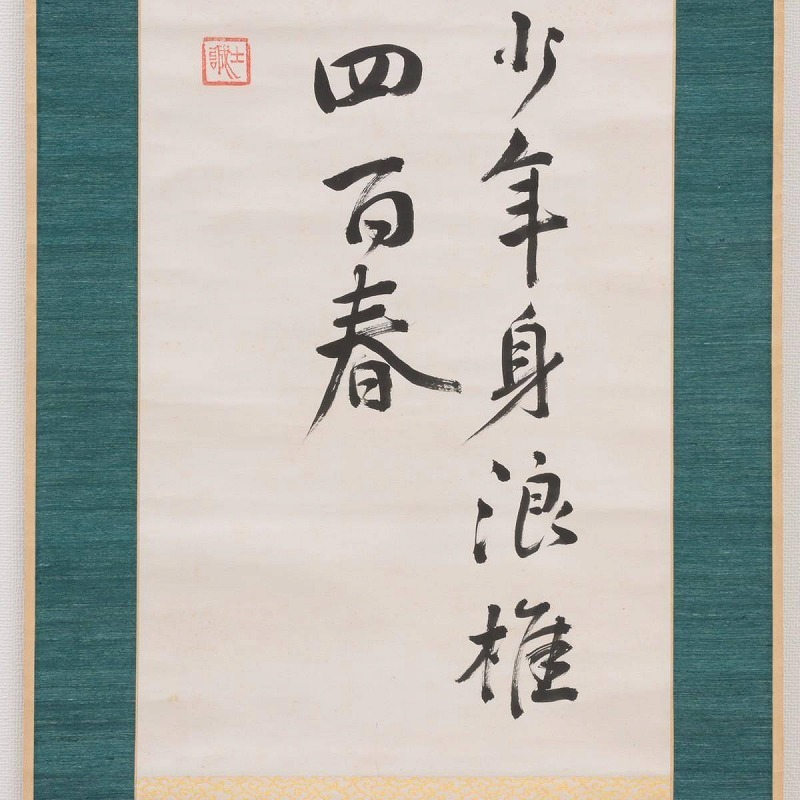 少年身浪
四百春
士誠